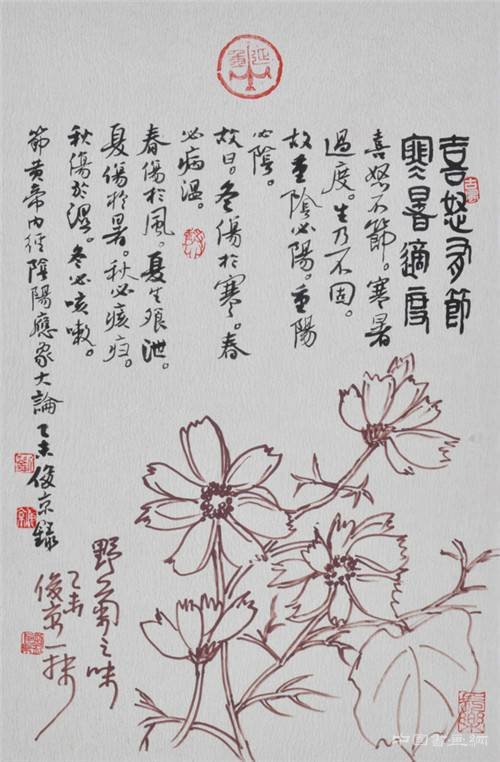 喜怒有節
寒暑適度
喜怒不節。寒暑
過度。生乃不固。
故重陰必陽。重陽
必陰。
故曰。冬傷於寒。春
必病温。
春傷於風。夏生飧泄。
夏傷於暑。秋必痎疟。
秋傷於湿。冬必咳嗽。
節黄帝内經陰陽應象大論 乙未俊京録
野菊之味
乙未
俊京一抹
中国書画網